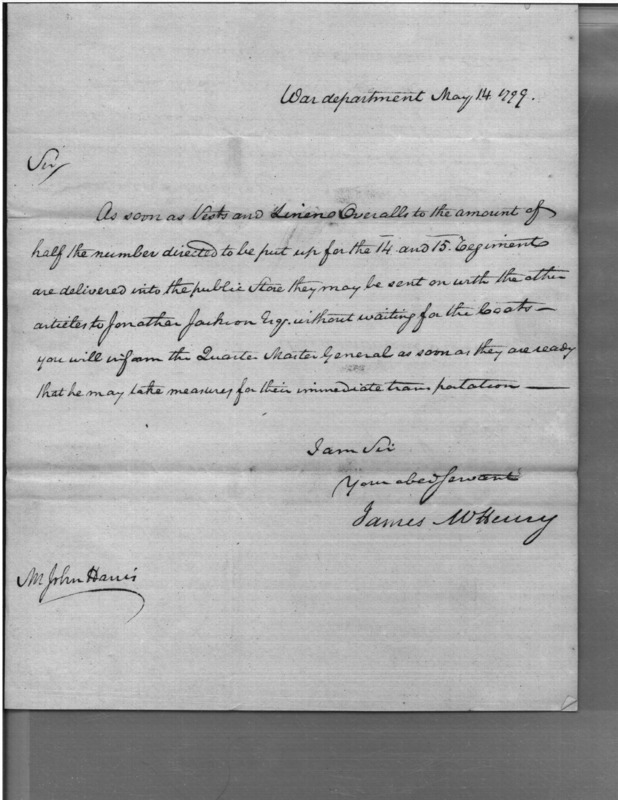 War department May 14. 1799.
Sir,
As soon as Vests and Linen Overalls to the amount of
half the number directed to be put up for the 14 and 15. Regiments
are delivered into the public Store they may be sent on with the other
articles to Jonathan Jackson Esqr. without waiting for the Coats —
you will inform the Quarter Master General as soon as they are ready
that he may take measures for their immediate transportation —
I am Sir
Your obed servant
James McHenry
Mr John Harris